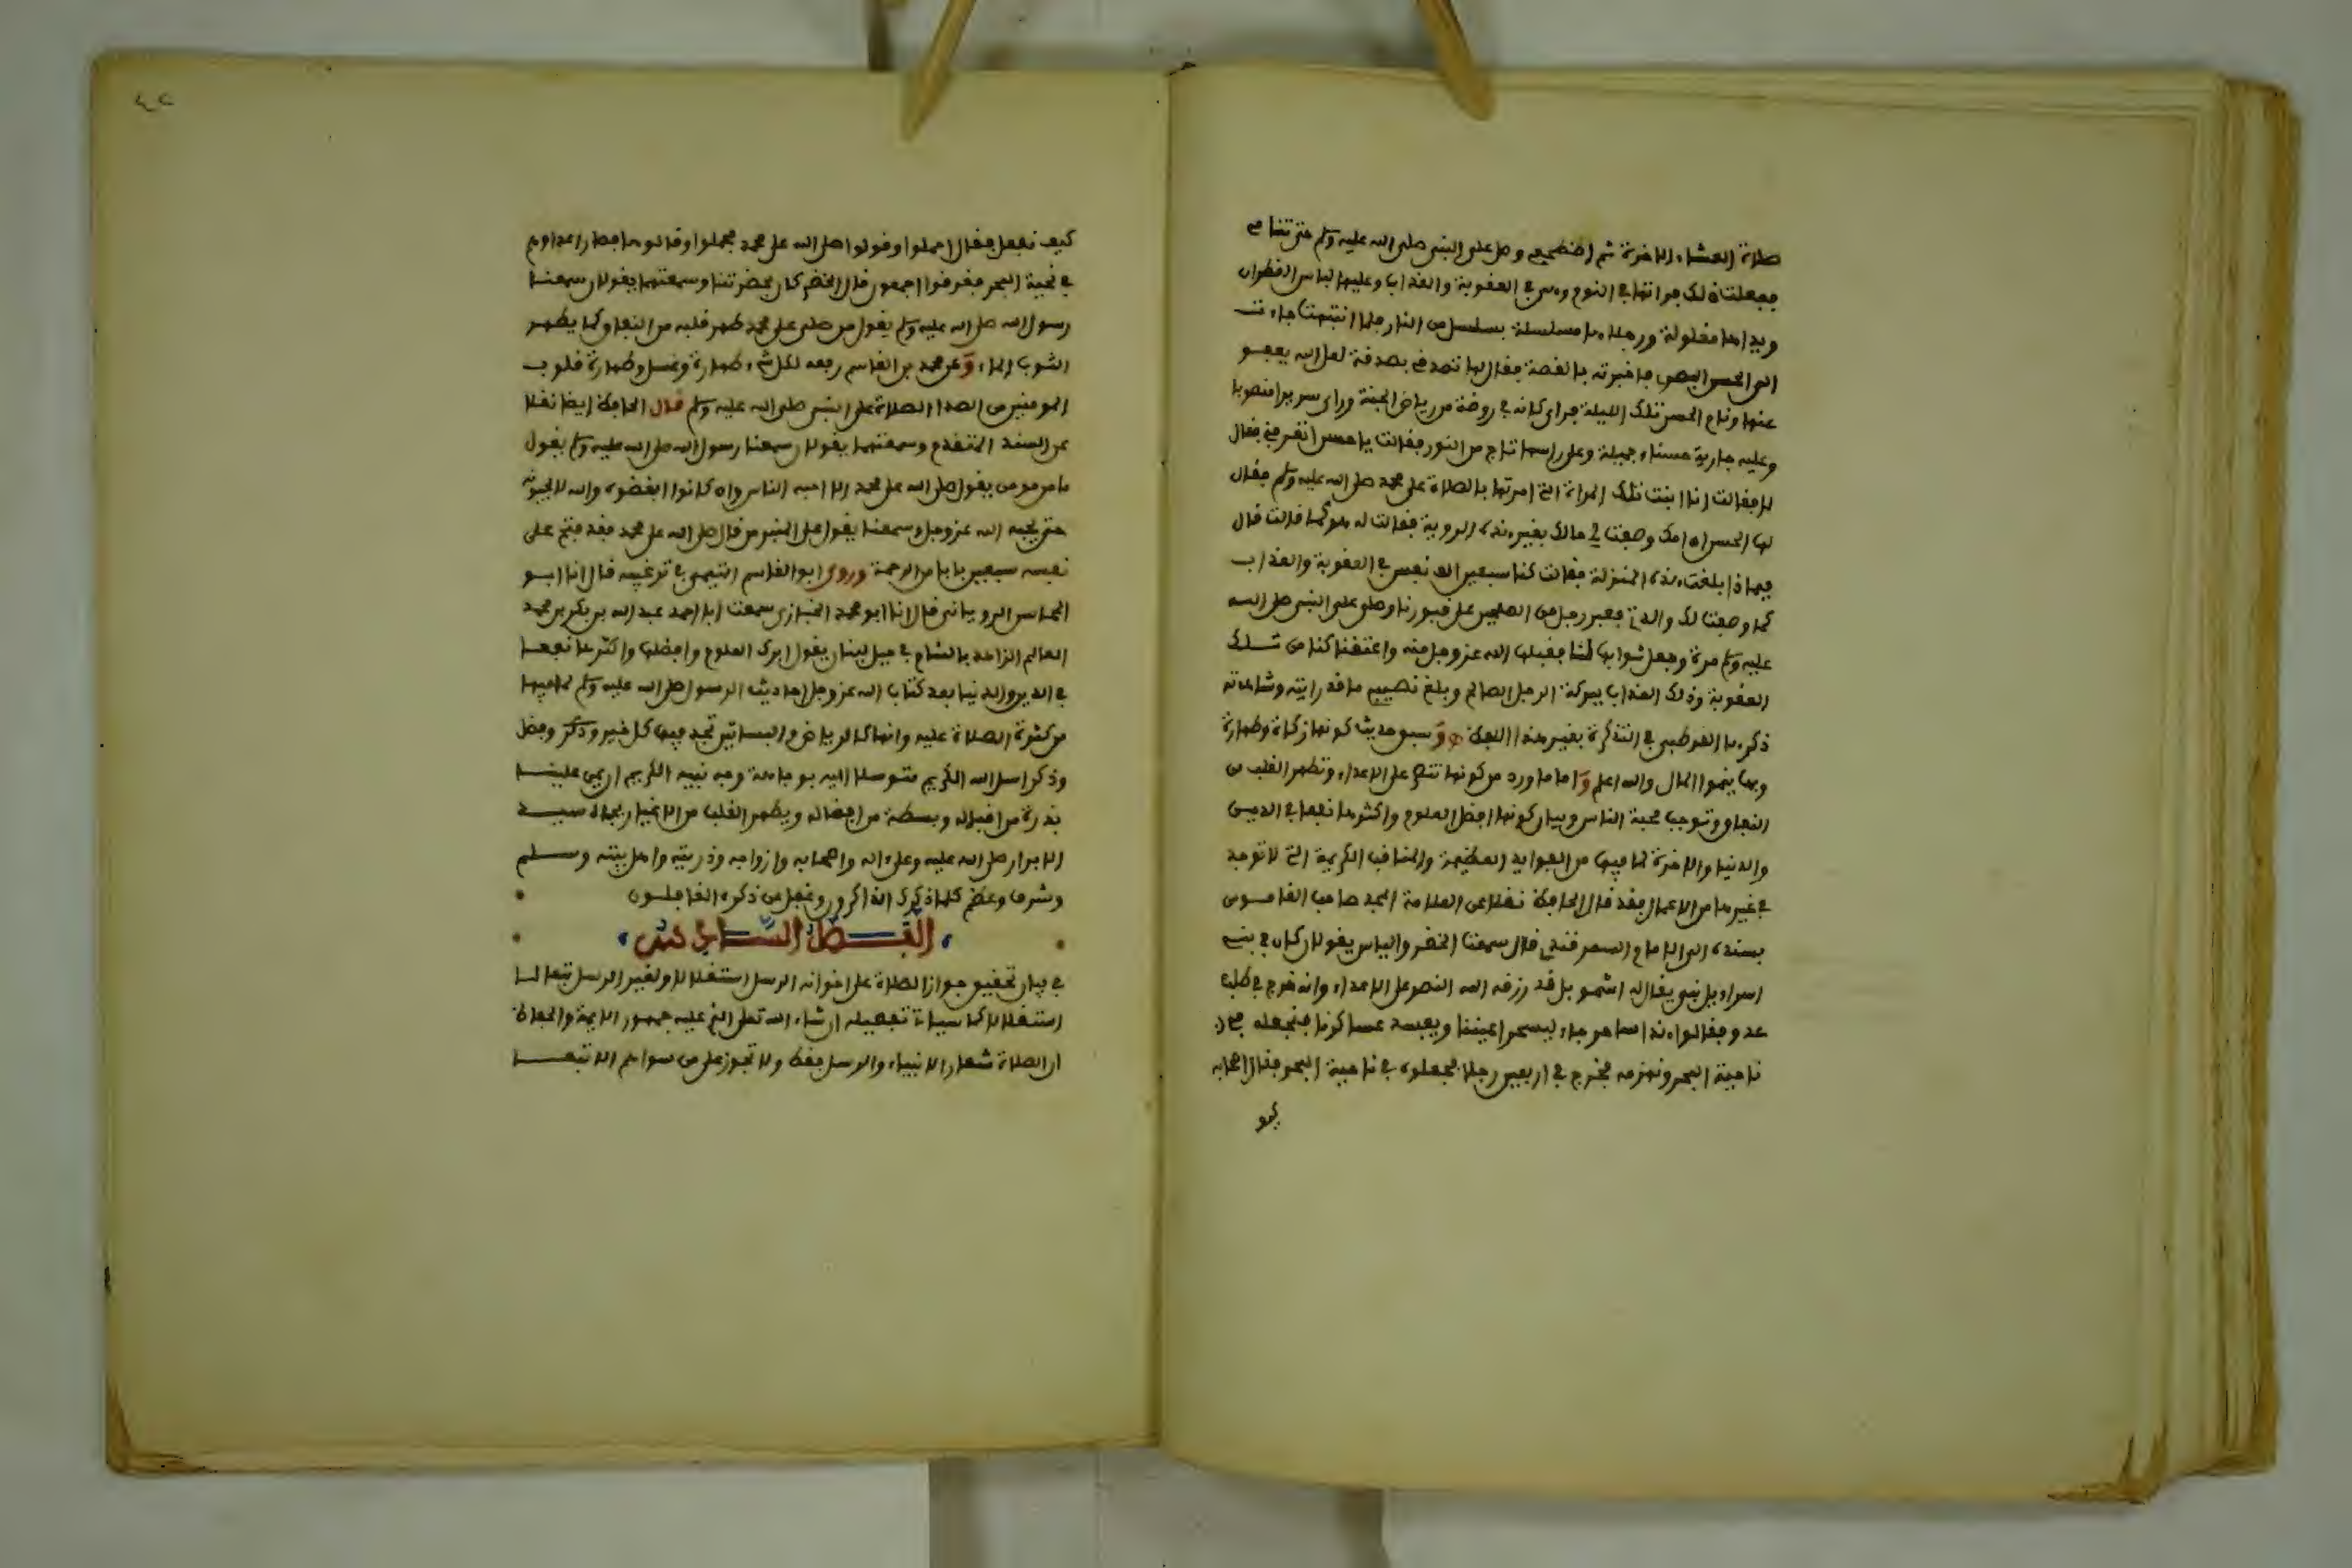 صلاة العشاء الاخرة ثم اضطجعي وصلي على النبي صلى الله عليه وسلم حتى تنامي
ففعلت ذلك فراتها في النوم وهي في العقوبة والعذاب وعليها لباس القطران
ويداها مغلولة ورجلاها مسلسلة بسلسل من النار فلما انتبهت جاءت
الى الحسن البصري فاخبرته بالقصة فقال لها تصدقي بصدقة لعل الله يعفو
عنها ونام الحسن تلك الليلة فراى كانه في روضة من رياض الجنة وراى سريرا منصوبا
وعليه جارية حسناء جميلة وعلى راسها تاج من النور فقالت يا حسن اتعرفني فقال
لا فقالت انا ابنت تلك المراة التي امرتها بالصلاة على محمد صلى الله عليه وسلم فقال
لها الحسن ان امك وصفت لي حالك بغير هذه الروية فقالت له هو كما قالت قال
فبماذا بلغت هذه المنزلة فقالت كنا سبعين الف نفس في العقوبة والعذاب
كما وصفت لك والدتي فعبر رجل من الصلحين على قبورنا وصلى على النبي صلى الله
عليه وسلم مرة وجعل ثوابها لنا فقبلها الله عز وجل منه واعتقنا كلنا من تلك
العقوبة وذلك العذاب ببركة الرجل الصالح وبلغ نصيبي ما قد رايته وشاهدته
ذكرها القرطبي في التذكرة بغير هذا اللفظ وسبق حديث كونها زكاة وطهارة
وبها ينموا المال والله اعلم واما ما ورد من كونها تنصر على الاعداء وتطهر القلب من
النفاق وتوجب محبة الناس وبيان كونها افضل العلوم واكثرها نفعا في الدين
والدنيا والاخرة لما فيها من الفوايد العظيمة والمناقب الكريمة التي لا توجد
في غيرها من الاعمال فقد قال الحافظ نقلا عن العلامة المجد صاحب القاموس
بسنده الى الامام السمرقندي قال سمعت الخضر والياس يقولان كان في بني
اسراءيل نبي يقال له اشمويل قد رزقه الله النصر على الاعداء وانه خرج في طلب
عدو فقالوا هذا ساحر جاء ليسحر اعيننا ويفسد عساكرنا فنجعله في
ناحية البحر ونهزمه فخرج في اربعين رجلا فجعلوه في ناحية البحر فقال اصحابه
كيف
كيف نفعل فقال احملوا وقولوا صلى الله على محمد فحملوا وقالوها فصار اعداوهم
في ناحية البحر فغرقوا اجمعون قال الخضر كان بحضرتنا وسمعتهما يقولان سمعنا
رسول الله صلى الله عليه وسلم يقول من صلى على محمد طهر قلبه من النفاق كما يطهر
الثوب الماء وعن محمد بن القاسم رفعه لكل شيء طهارة وغسل وطهارة قلوب
المومنين من الصدا الصلاة على النبي صلى الله عليه وسلم قال الحافظ ايضا نقلا
عن السند المتقدم وسمعتهما يقولان سمعنا رسول الله صلى الله عليه وسلم يقول
ما من مومن يقول صلى الله على محمد الا احبه الناس وان كانوا ابغضوه والله لا يحبونه
حتى يحبه الله عز وجل وسمعنا يقول على المنبر من قال صلى الله على محمد فقد فتح على
نفسه سبعين بابا من الرحمة وروى ابو القاسم التيمي في ترغيبه قال انا ابو
المحاسن الروياني قال انا ابو محمد الخبازي سمعت ابا احمد عبد الله بن بكر بن محمد
العالم الزاهد بالشام في جبل لبنان يقول ابرك العلوم وافضلها واكثرها نفعا
في الدين والدنيا بعد كتاب الله عز وجل احاديث الرسول صلى الله عليه وسلم لما فيها
من كثرة الصلاة عليه وانها كالرياض والبساتين تجد فيها كل خير وذكر وفضل
وذكر اسل الله الكريم متوسلا اليه بوجاهة وجه نبيه الكريم ان يمن علينا
بذرة من اقباله وبسطة من افضاله ويطهر القلب من الاغيار بجاه سيد
الابرار صلى الله عليه وعلى ءاله واصحابه وازواجه وذريته واهل بيته وسلم
وشرف وعظم كلما ذكرك الذاكرون وغفل عن ذكره الغافلون
الفصل الساني عشر
في بيان تحقيق جواز الصلاة على اخوانه الرسل استقلالا ولغير الرسل تبعا لا
استقلالا كما سياتي تفصيله ان شاء الله تعلى الذي عليه جمهور الايمة والحفاظ
ان الصلاة شعار الانبياء والرسل فقط ولا تجوز على من سواهم الا تبعا